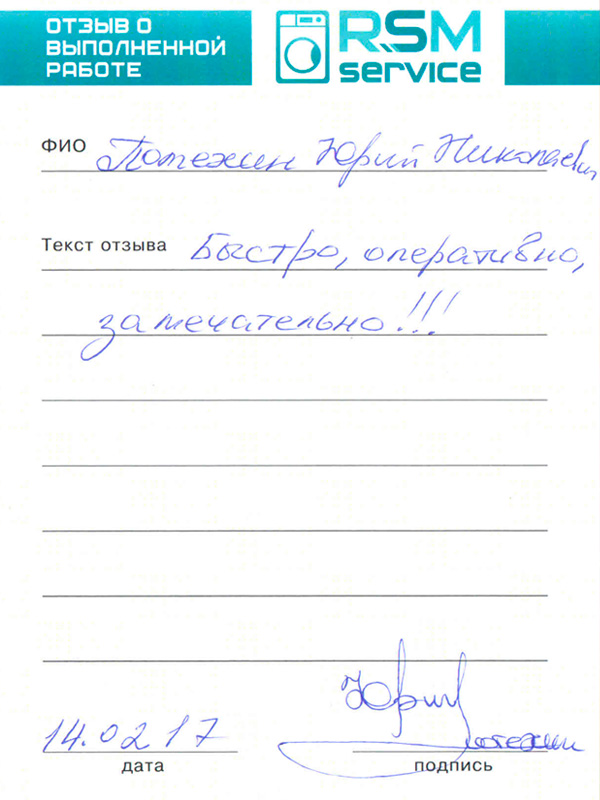 ОТЗЫВ О
ВЫПОЛНЕННОЙ
РАБОТЕ
RSM
service
ФИО Потехин Юрий Николаевич
Текст отзыва Быстро, оперативно,
замечательно!!!
Юрий
Потехин
14.02.17
дата
подпись